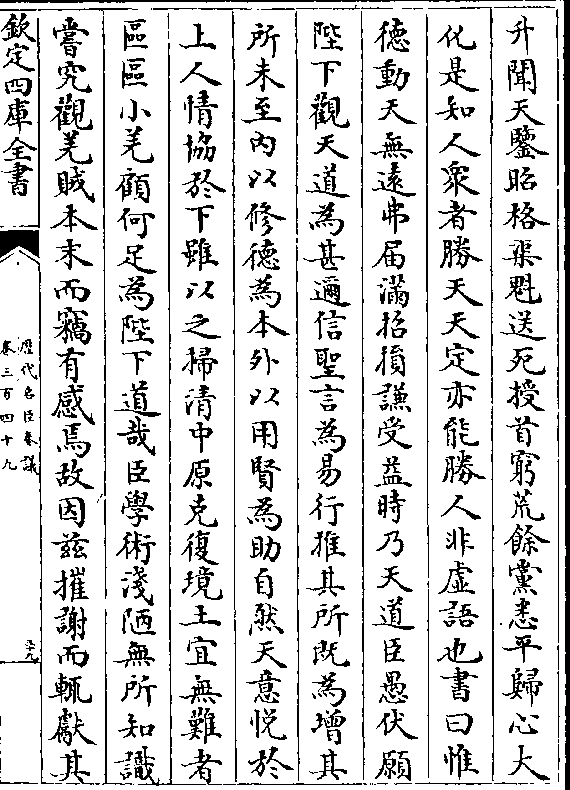 升聞天鑒昭格渠魁送死授首窮荒餘黨悉平歸心大
化是知人衆者勝天天定亦能勝人非虛語也書曰惟
徳動天無遠弗届滿招損謙受益時乃天道臣愚伏願
陛下觀天道為甚邇信聖言為易行推其所既為增其
所未至內以修徳為本外以用賢為助自然天意悅於
上人情協於下雖以之掃清中原克復境土宜無難者
區區小羌顧何足為陛下道哉臣學術淺陋無所知識
嘗究觀羌賊本末而竊有感焉故因兹摧謝而輒獻其
欽定四庫全書
歷代名臣奏議
卷三百四十九